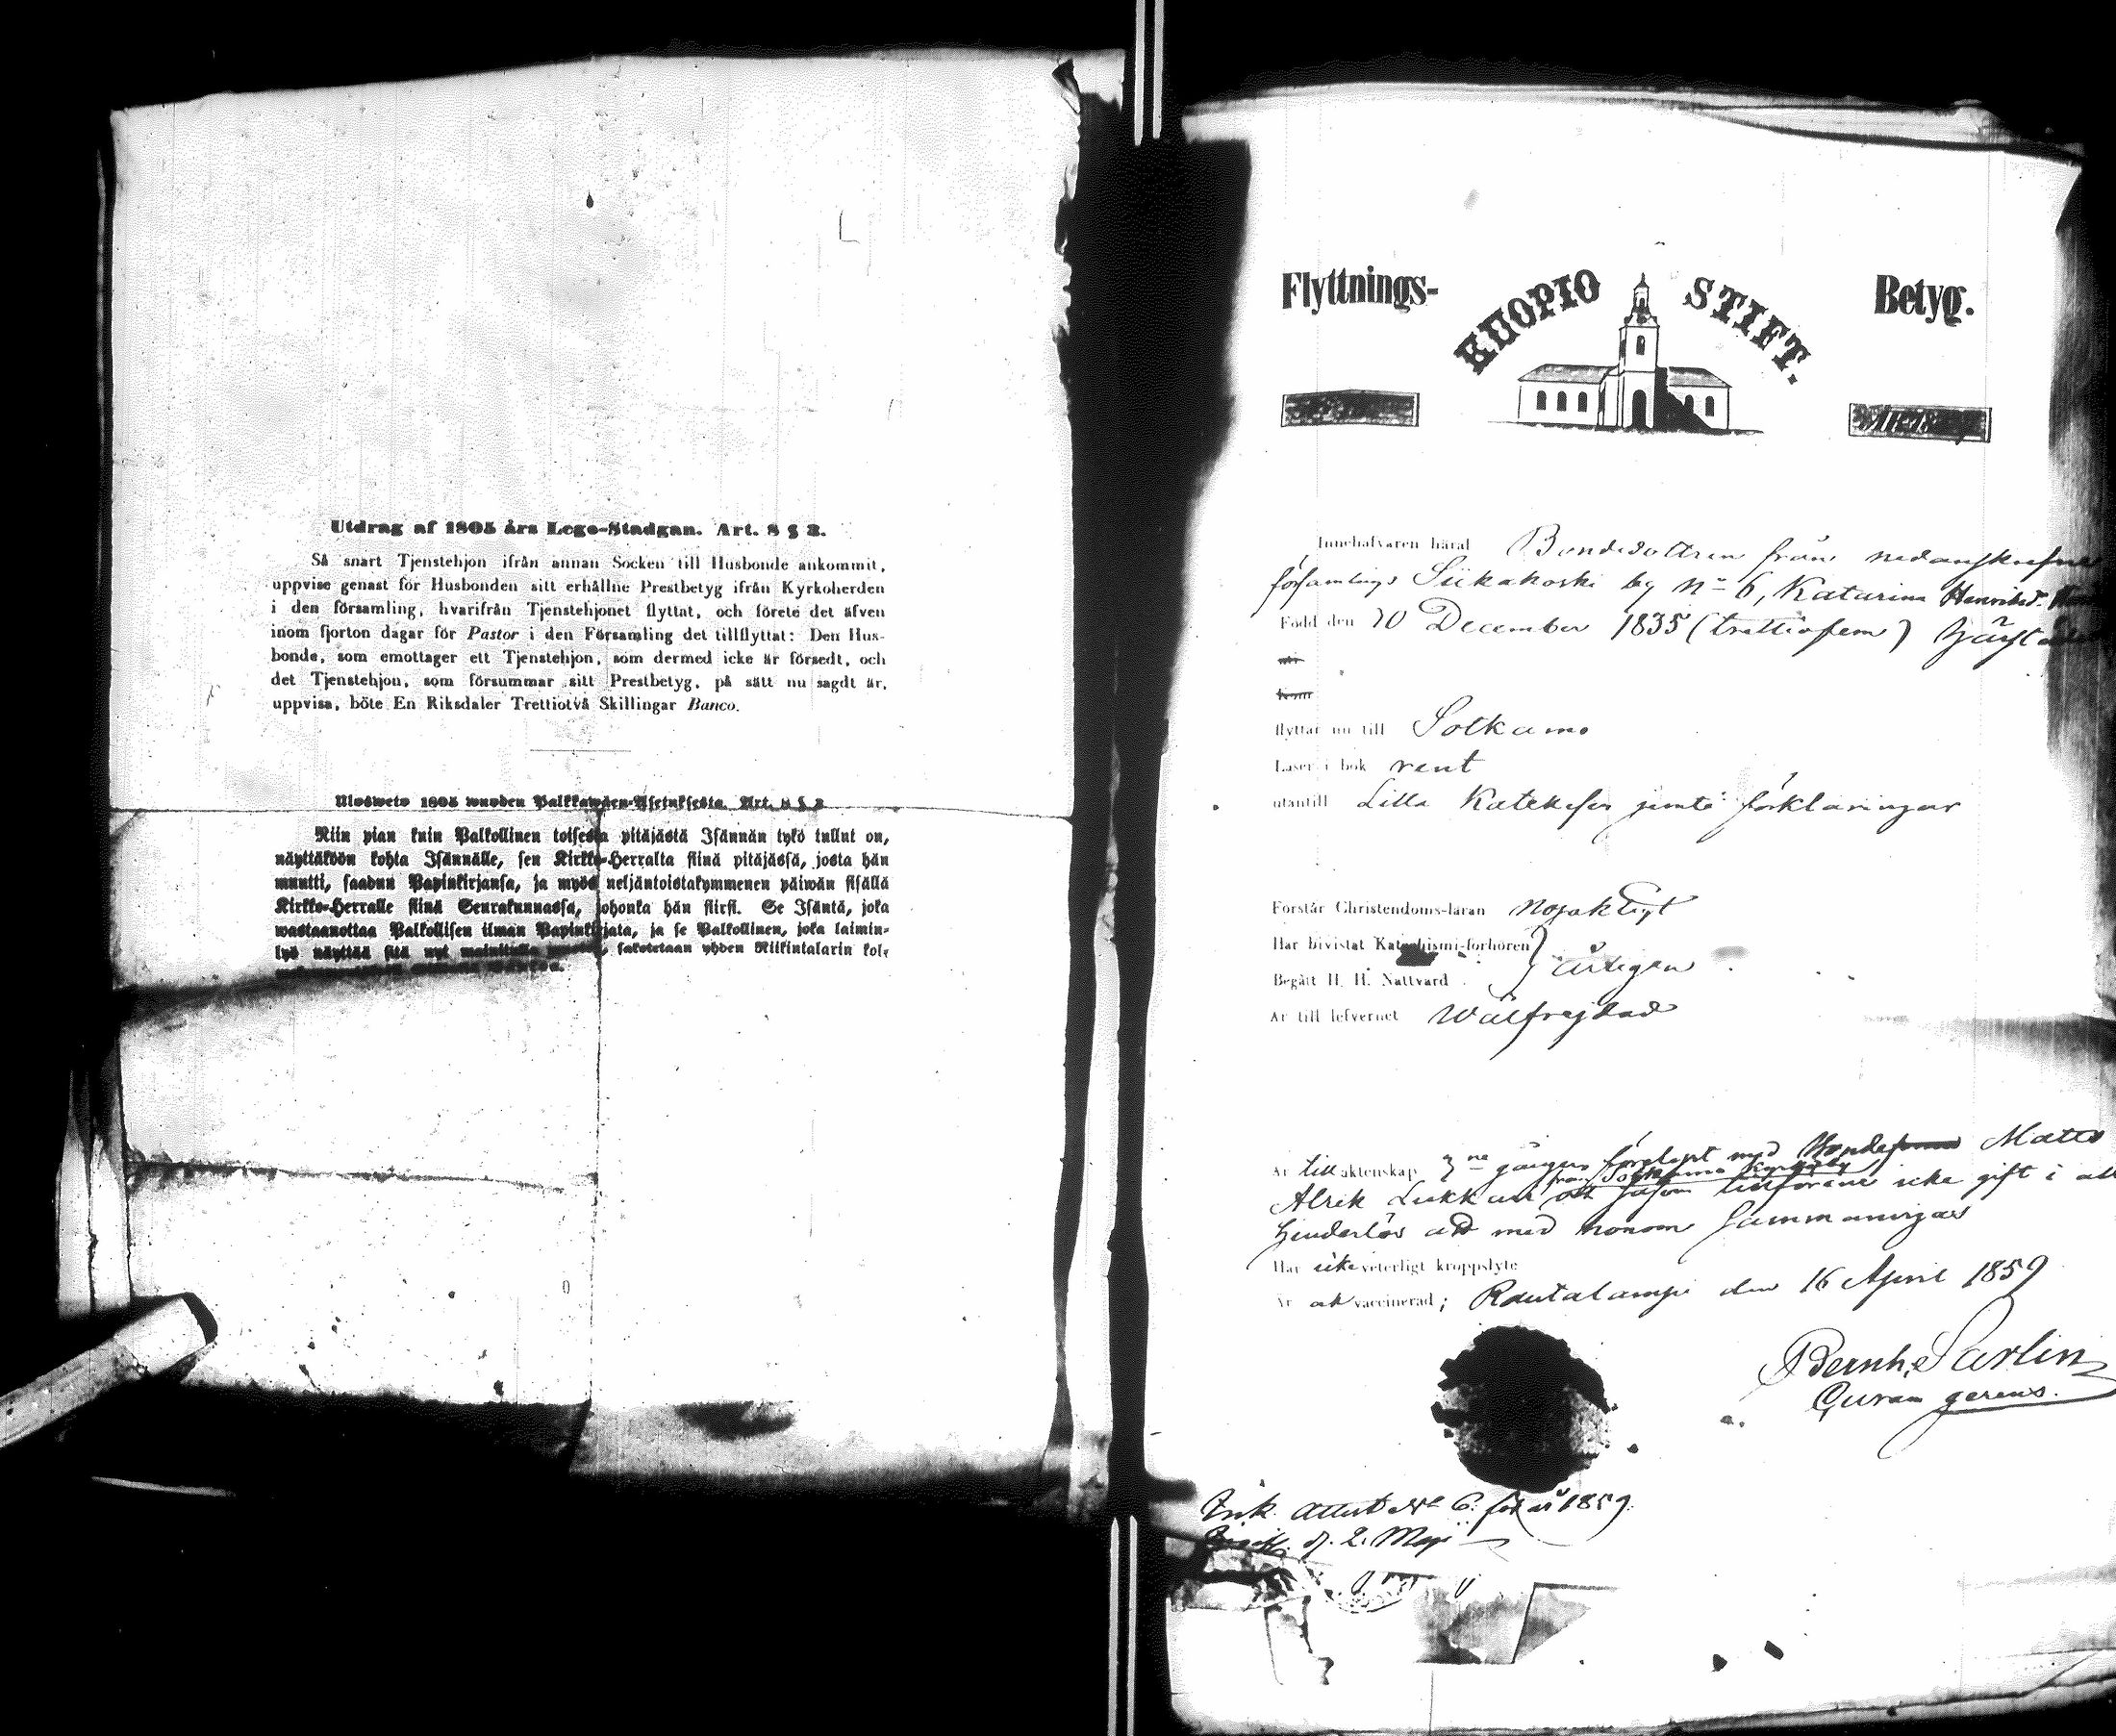 Utdrag af 1805 års Lego-Stadgan. Art. 8 § 2.
Så snart Tjenstehjon ifrån annan Socken till Husbonde ankommit,
uppvise genast för Husbonden sitt erhållne Prestbetyg ifrån Kyrkoherden
i den församling, hvarifrån Tjenstehjonet flyttat, och förete det äfven
inom fjorton dagar för Pastor i den Församling det tillflyttat: Den Hus-
bonde, som emottager ett Tjenstehjon, som dermed icke är försedt, och
det Tjenstehjon, som försummar sitt Prestbetyg, på sätt nu sagdt är,
uppvisa, böte En Riksdaler Trettiotvå Skillingar Banco.
Ulosweto 1805 wuoden Palkkawäen-Asetuksesta. Art. 8 § 2
Niin pian kuin Palkollinen toisesta pitäjästä Isännän tykö tullut on,
näyttäköön kohta Isännälle, sen Kirkko-Herralta siinä pitäjässä, josta hän
muutti, saadun Papinkirjansa, ja myös neljäntoistakymmenen päiwän sisällä
Kirkko-Herralle siinä Seurakunnassa, johonka hän siirsi. Se Isäntä, joka
wastaanottaa Palkollisen ilman Papinkirjata, ja se Palkollinen, joka laimin-
lyö näyttää sitä nyt mainitulla sakotetaan yhden Riikintalarin kol-
Flyttnings-
KUOPIO STIFT.
Betyg.
Innehafvaren häraf Bondedottren från
församlings Siikakoski by No 6, Katarina Henriksd.
Född den 20 December 1835 (trettiofem)
är
Kom
flyttar nu till Sotkamo
Läser i bok rent
utantill Lilla Katekesen jemte förklaringar
Förstår Christendoms-läran nöjaktigt
Har bivistat Katechismi-förhören
Begått H. H. Nattvard årligen
Är till lefvernet Wälfrejdad
Är till äktenskap 3ne gånger förelyst med Matts
från Sotkamo
Alrik Lukkari och såsom tillförene icke gift i
hinderlös att med honom sammanvigas
Har icke veterligt kroppslyte
Är ock vaccinerad; Rautalampi den 16 April 1859
Bernh. Sarlin
Curam gerens.
Ink. Attest No 6. för år 1859.
d. 2. Maji